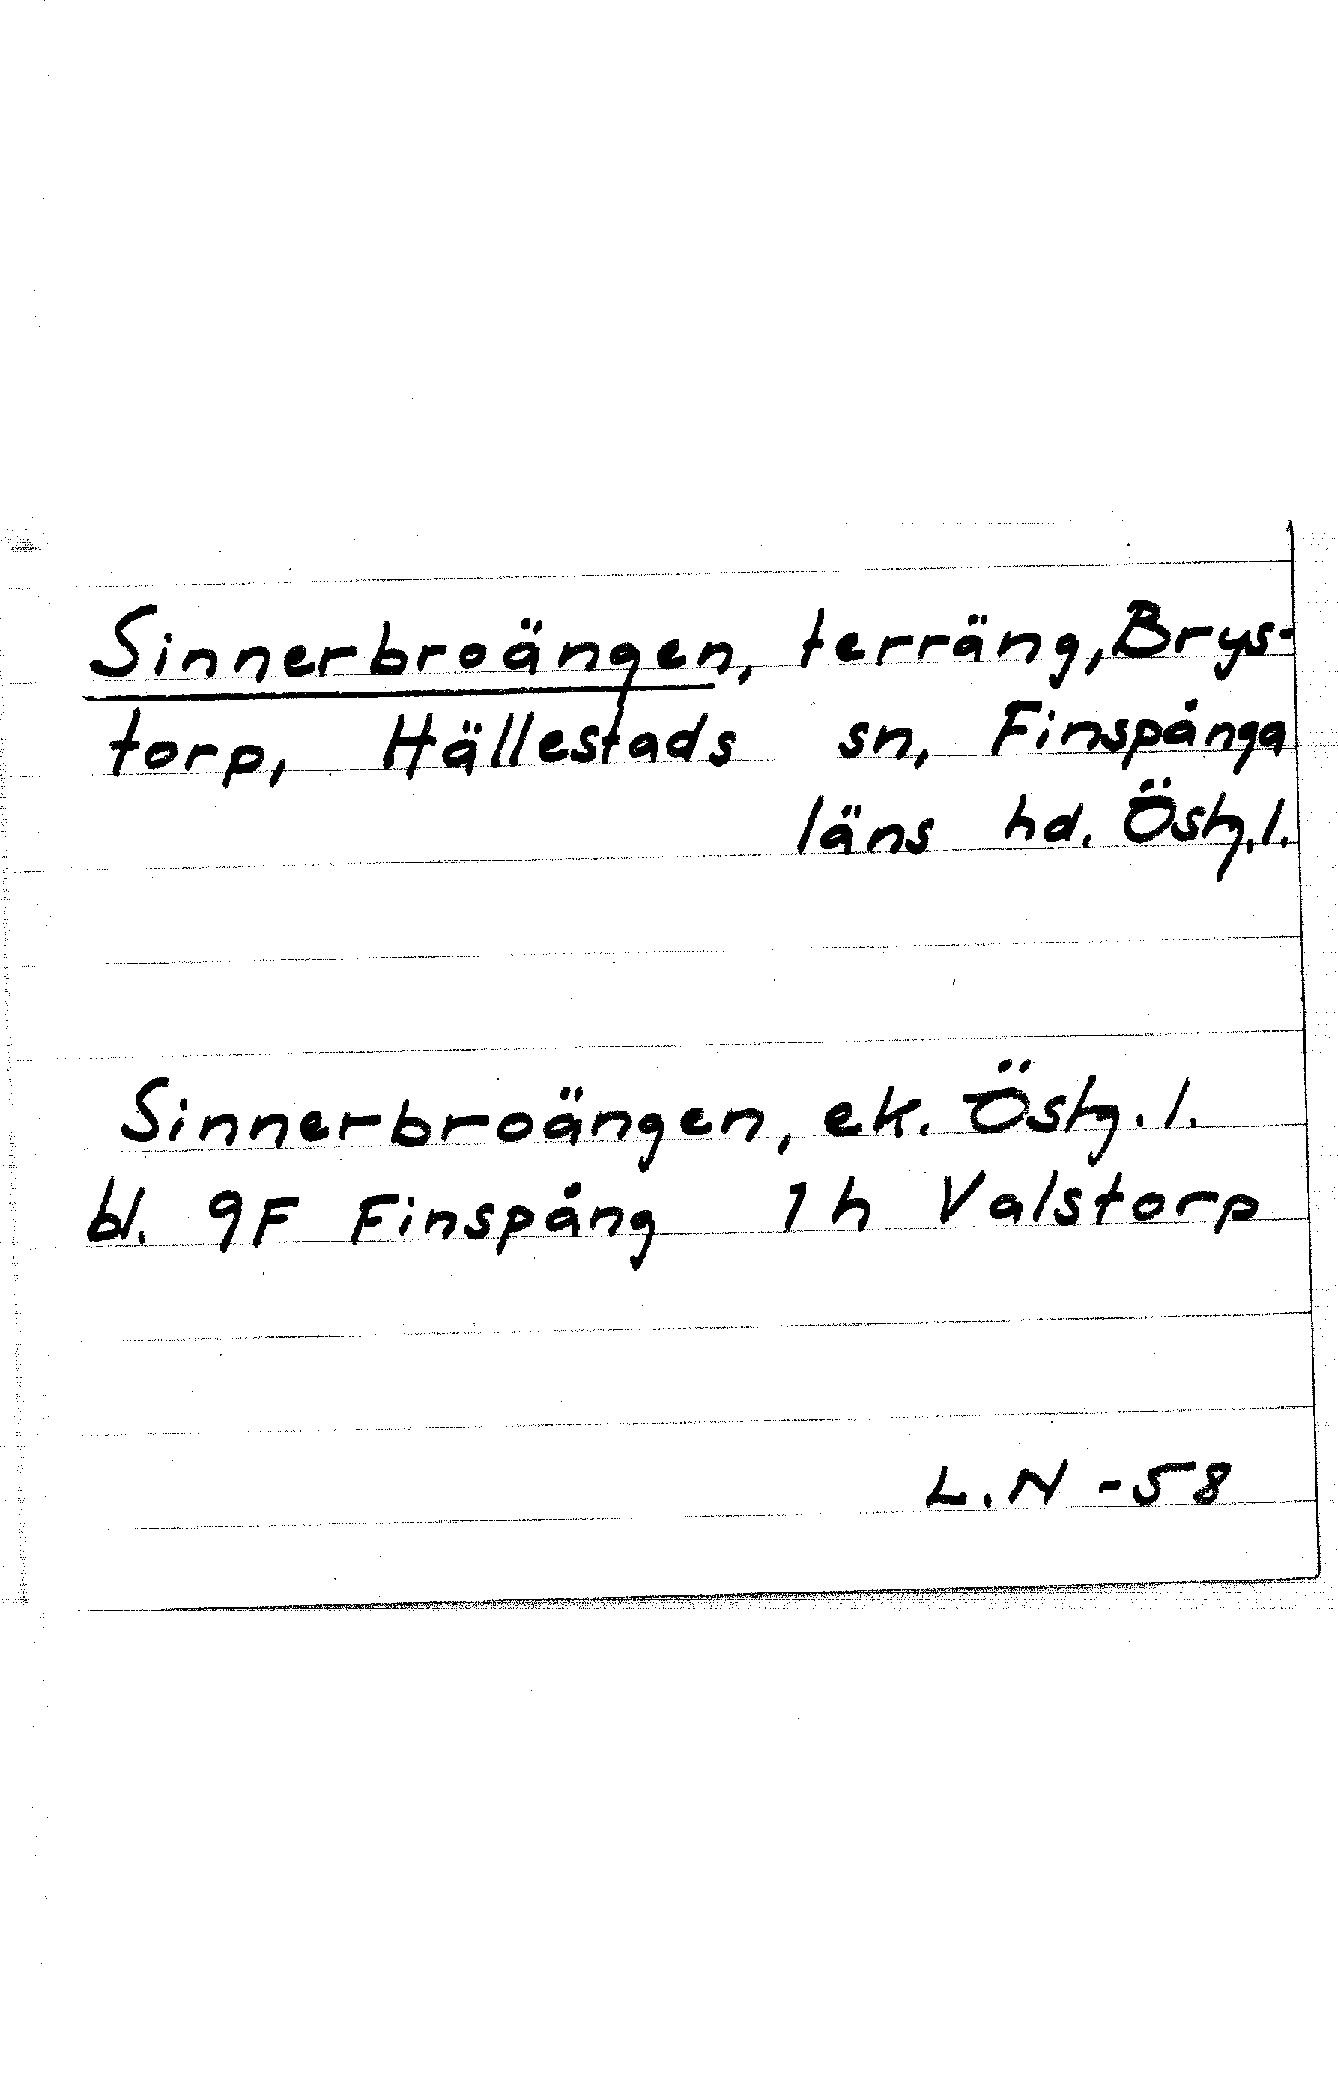 Sinnerbroängen, terräng, Brys-
torp, Hällestads sn, Finspånga
läns hd. Östg.l.
Sinnerbroängen, ek. Östg.l.
bl. 9F Finspång 1h Valstorp
L.N -58